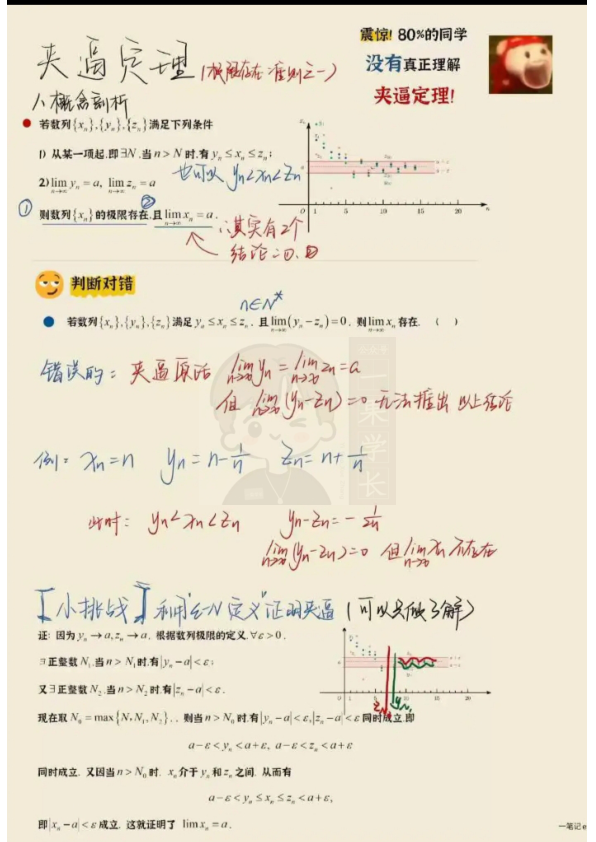 震惊! 80%的同学
没有真正理解
夹逼定理!
夹逼定理(极限存在准则之一)
1、概念剖析
若数列{xₙ},{yₙ},{zₙ}满足下列条件
1) 从某一项起,即∃N,当n>N时,有yₙ≤xₙ≤zₙ;
2) lim yₙ=a, lim zₙ=a
n→∞ n→∞
也可以 yₙ<xₙ<zₙ
① 则数列{xₙ}的极限存在, ② 且 lim xₙ=a.
n→∞
其实有2个
结论:①、②
判断对错
n∈N*
若数列{xₙ},{yₙ},{zₙ}满足yₙ≤xₙ≤zₙ, 且lim(yₙ-zₙ)=0, 则lim xₙ存在. ( )
n→∞ n→∞
错误的: 夹逼原话 lim yₙ = lim zₙ=a
n→∞ n→∞
但 lim (yₙ-zₙ)=0 无法推出 以上结论
n→∞
例: xₙ=n yₙ=n-1/n zₙ=n+1/n
此时: yₙ<xₙ<zₙ yₙ-zₙ=-
lim (yₙ-zₙ)=0 但 lim xₙ 不存在
n→∞ n→∞
一果学长
【小挑战】利用"ε-N定义"证明夹逼(可以只做了解)
证: 因为yₙ→a,zₙ→a, 根据数列极限的定义,∀ε>0,
∃正整数N₁,当n>N₁时,有|yₙ-a|<ε;
又∃正整数N₂,当n>N₂时,有|zₙ-a|<ε.
现在取N₀=max{N,N₁,N₂}, , 则当n>N₀时,有|yₙ-a|<ε,|zₙ-a|<ε同时成立,即
a-ε<yₙ<a+ε, a-ε<zₙ<a+ε
同时成立. 又因当n>N₀时, xₙ介于yₙ和zₙ之间, 从而有
a-ε<yₙ≤xₙ≤zₙ<a+ε,
即|xₙ-a|<ε成立. 这就证明了 lim xₙ=a.
一笔记